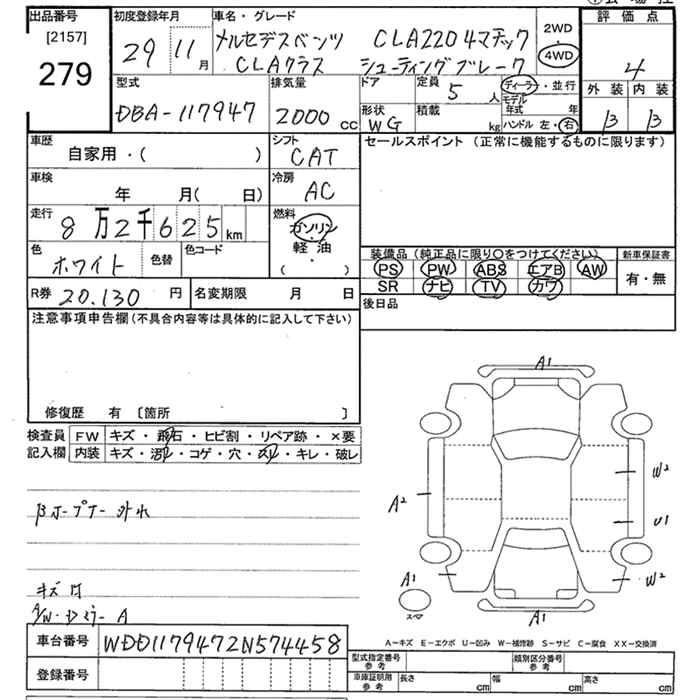 出品番号
[2157]
279
初度登録年月
29年11月
車名・グレード
メルセデスベンツ CLA220 4マチック
CLAクラス シューティングブレーク
2WD
4WD
評価点
4
外装 内装
B B
型式
DBA-117947
排気量
2000cc
ドア
形状
WG
定員
5人
積載
kg
ディーラー・並行
モデル年式 年
ハンドル 左・右
車歴
自家用・( )
シフト
CAT
セールスポイント (正常に機能するものに限ります)
車検
年 月(日)
冷房
AC
走行
8万2千625km
燃料
ガソリン・
軽油・
( )
色
ホワイト
色替
色コード
装備品 (純正品に限り○をつけてください)
PS PW ABS エアB AW
SR ナビ TV カワ
新車保証書
有・無
R券 20.130円
名変期限 月 日
後日品
注意事項申告欄(不具合内容等は具体的に記入して下さい)
修復歴 有 [箇所 ]
検査員
記入欄
FW キズ・飛石・ヒビ割・リペア跡・×要
内装 キズ・汚レ・コゲ・穴・スレ・キレ・破レ
キズ
A/W
A
A1
A2
W2
U1
A1
W2
スペア
A1
A-キズ E-エクボ U-凹み W-補修跡 S-サビ C-腐食 XX-交換済
車台番号 WDD1179472N574458
登録番号
型式指定番号
参考
類別区分番号
参考
車庫証明用
参考
長さ cm
幅 cm
高さ cm